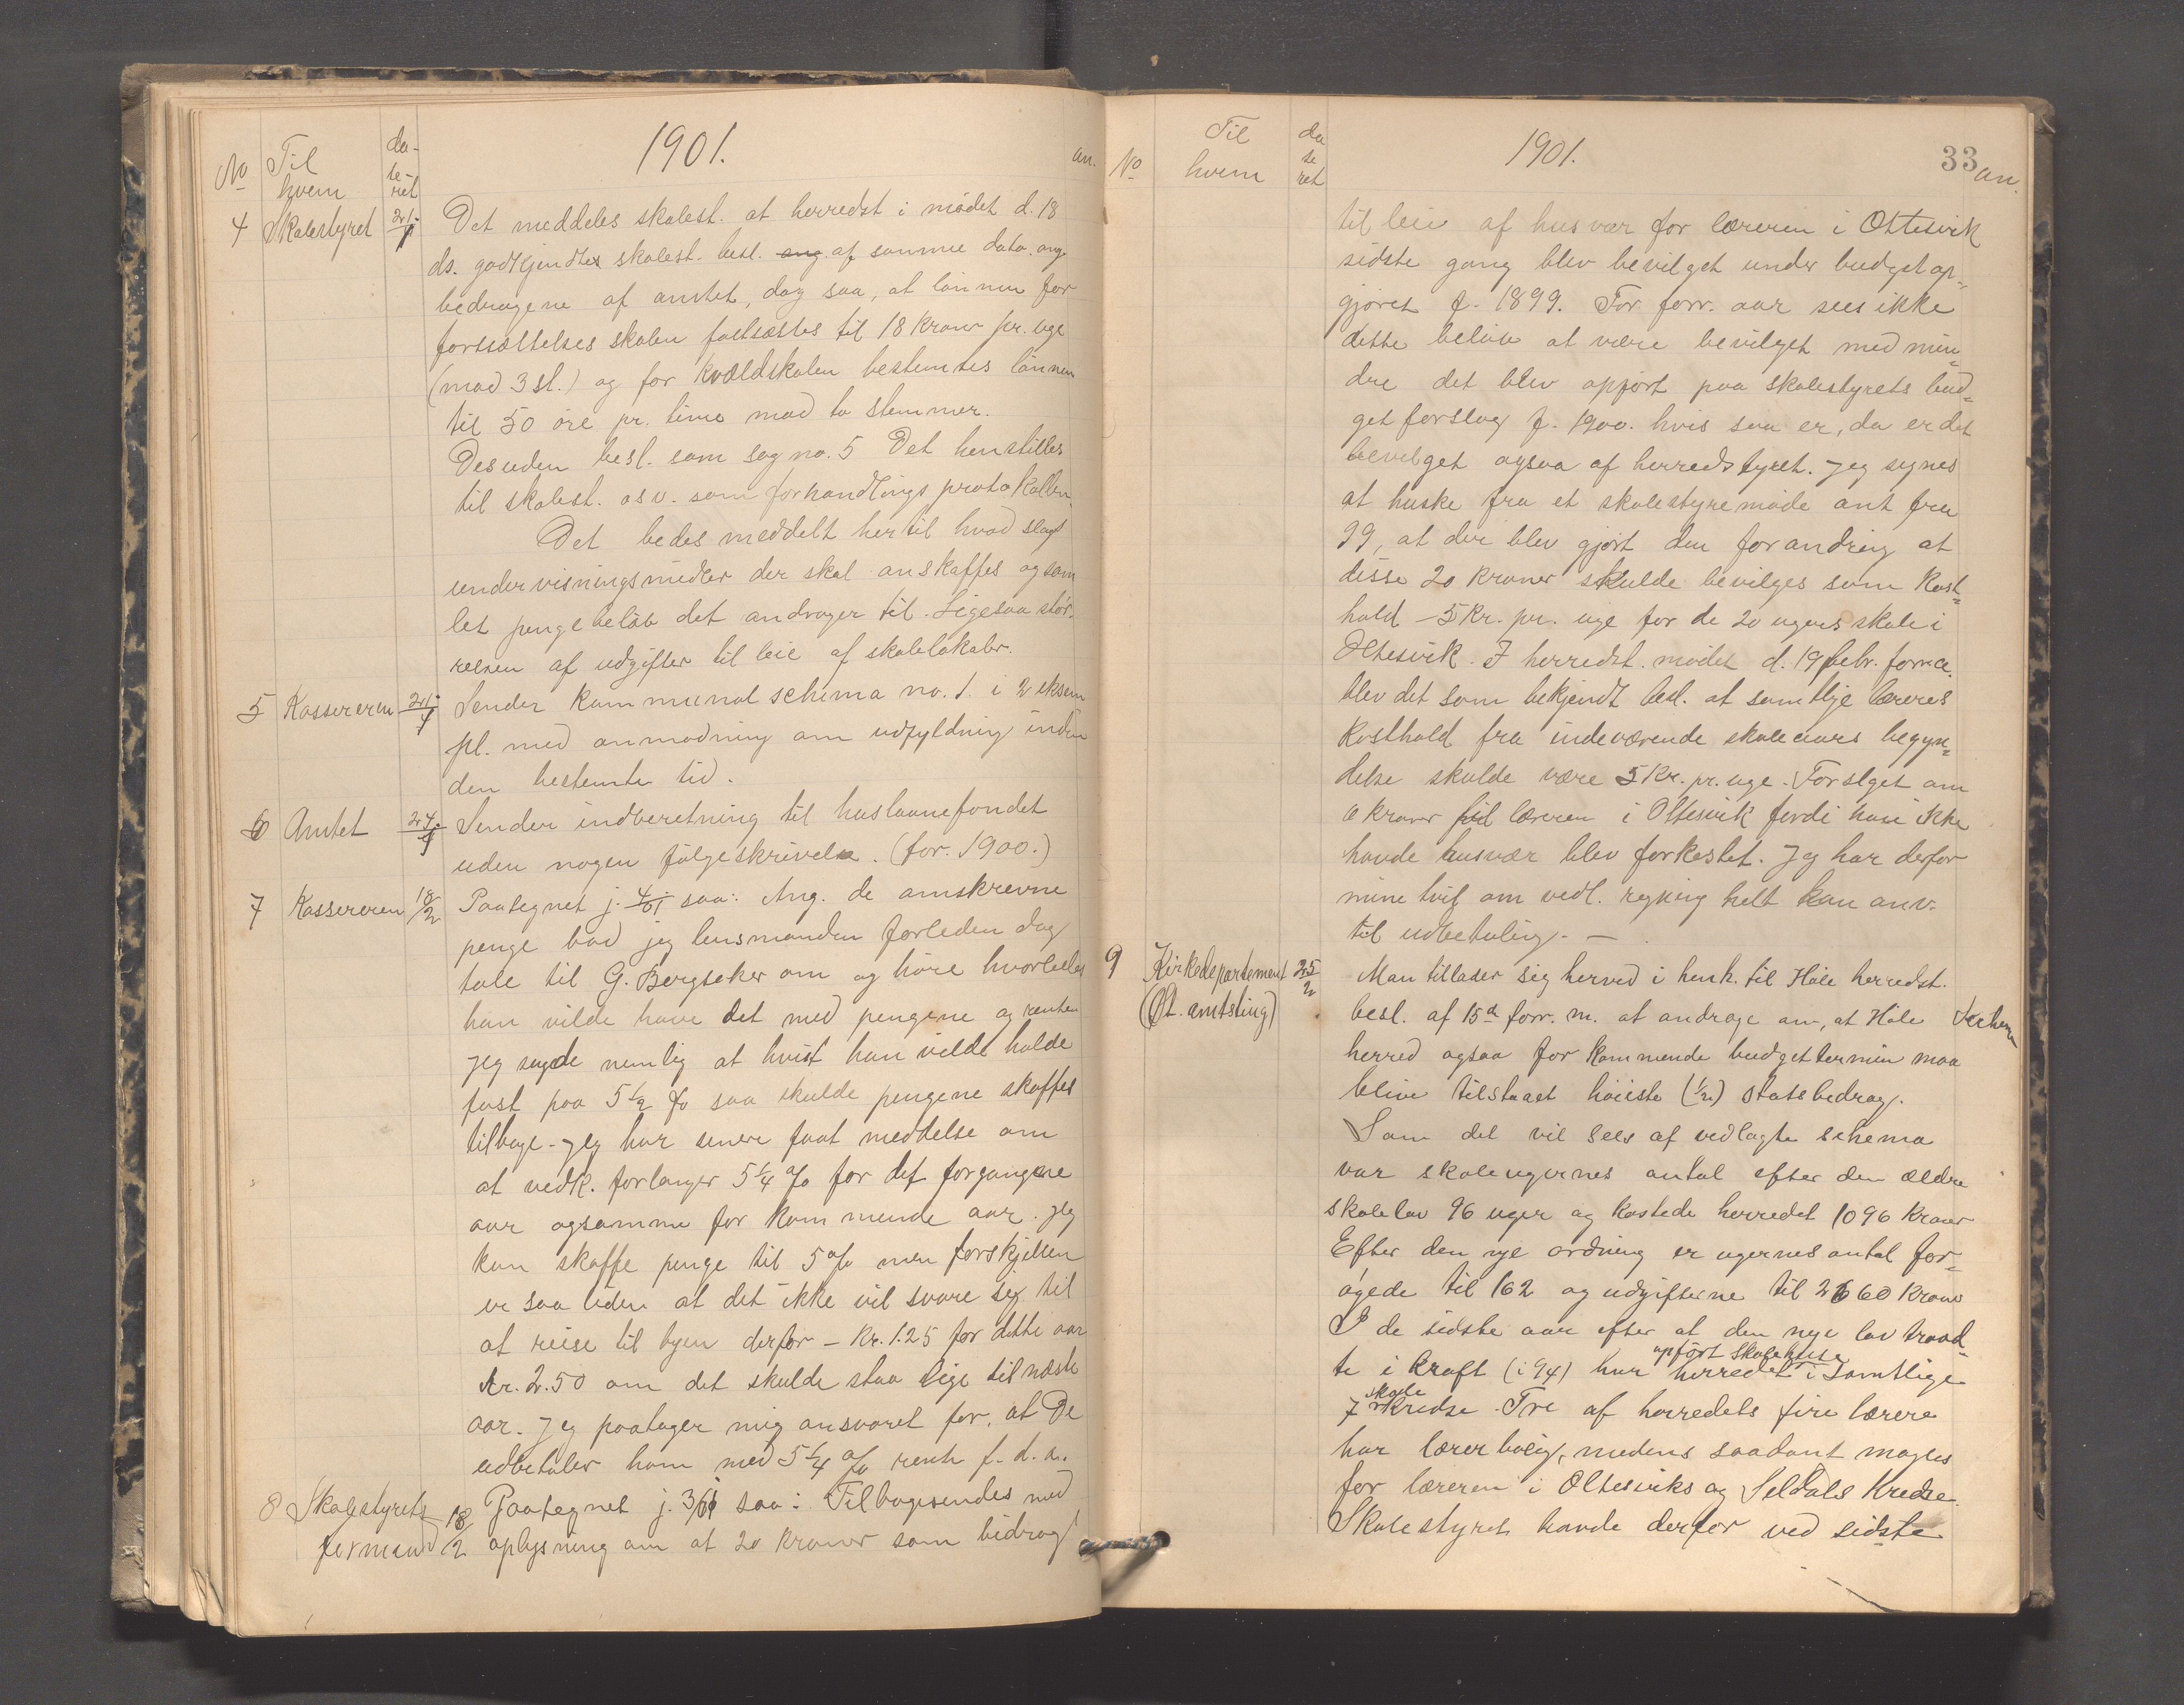 1901.
an.
No Til hvem da-te-ret
4 Skolestyret 21/1 Det meddeles skolest. at herredst i mødet d. 18
ds. godkjendtes skolest. besl. ang. af samme dato. ang.
bedragene af amtet, dog saa, at lønnen for
forsættelses skolen fastsættes til 18 kroner pr. uge
(mod 3 st.) og for kvældskolen bestemtes lønnen
til 50 øre pr. time mod to stemmer.
Desuden besl. som sag no. 5 Det henstilles
til skolest. osv. som forhandlings protokollen
Det bedes meddelt hertil hvad slags
undervisningsmidler der skal anskaffes og sam
let pengebeløb det andrager til. Ligesaa stør-
relsen af udgifter til leie af skolelokaler.
5 Kassereren 21/1 Sender kommunal schema no. 1. i 2 eksem
pl. med anmodning om udfyldning inden
den bestemte tid.
6 Amtet 24/1 Sender indberetning til huslaanefondet
uden nogen følgeskrivelse. (for. 1900.)
7 Kassereren 18/2 Paategnet j. 4/01 saa: Ang. de omskrevne
penge bad jeg lensmanden forleden dag
tale til G. Bergsaker om og høre hvorledes
han vilde have det med pengene og renten
jeg sagde nemlig at hvist han vilde holde
fast paa 5 1/2 % saa skulde pengene skaffes
tilbage. Jeg har senere faat meddelse om
at vedk. forlanger 5 1/4 % for det forgangene
aar ogsamme for kommende aar. Jeg
kan skaffe penge til 5 % men forskjellen
er saa liden at det ikke vil svare sig til
at reise til byen derfor – Kr. 1.25 for dette aar
Kr. 2.50 om det skulde staa lige til næste
aar. Jeg paatager mig ansvaret for, at De
udbetaler ham med 5 1/4 % rente f. d. a.
8 Skolestyrets formand 18/2 Paategnet j. 3/01 saa: Tilbagesendes med
oplysning om at 20 kroner som bidrag
1901.
33
an.
No Til hvem da te ret
til leie af husvær for læreren i Oltesvik
sidste gang blev bevilget under budgetop-
gjøret f. 1899. For forr. aar sees ikke
dette beløb at være bevilget med min-
dre det blev opført paa skolestyrets bud-
getforslag f. 1900. hvis saa er, da er det
bevilget ogsaa af herredstyret. Jeg synes
at huske fra et skolestyremøde ant fra
99, at der blev gjort den forandring at
disse 20 kroner skulde bevilges som kost-
hold – 5 Kr. pr. uge for de 20 ugers skole i
Oltesvik. I herredst. mødet d. 19 febr. forr. a.
blev det som bekjendt besl. at samtlige læreres
kosthold fra indeværende skoleaars begyn-
delse skulde være 5 Kr. pr. uge. Forslget om
6 kroner til læreren i Oltesvik fordi han ikke
havde husvær blev forkastet. Jeg har derfor
mine tvil om vedl. regning helt kan anv.
til udbetaling. –
9 Kirkedepartement (Gt. amtsting) 25/2 Man tillader sig herved i henh. til Høle herredst.
besl. af 15d forr. m. at andrage om, at Høle
herred ogsaa for kommende budgettermin maa
blive tilstaaet høieste (1/2) statsbedrag.
Som det vil sees af vedlagte schema
var skoleugernes antal efter den ældre
skolelov 96 uger og kostede herredet 1096 kroner
Efter den nye ordning er ugernes antal for-
øgede til 162 og udgifterne til 2660 kroner
I de sidste aar efter at den nye lov traad-
opført skolehuse
te i kraft (i 94) har herredet i samtlige
skole
7 kredse. Tre af herredets fire lærere
har lærerbolig, medens saadant mangles
for læreren i Oltesviks og Seldals kredse.
Skolestyret havde derfor ved sidste